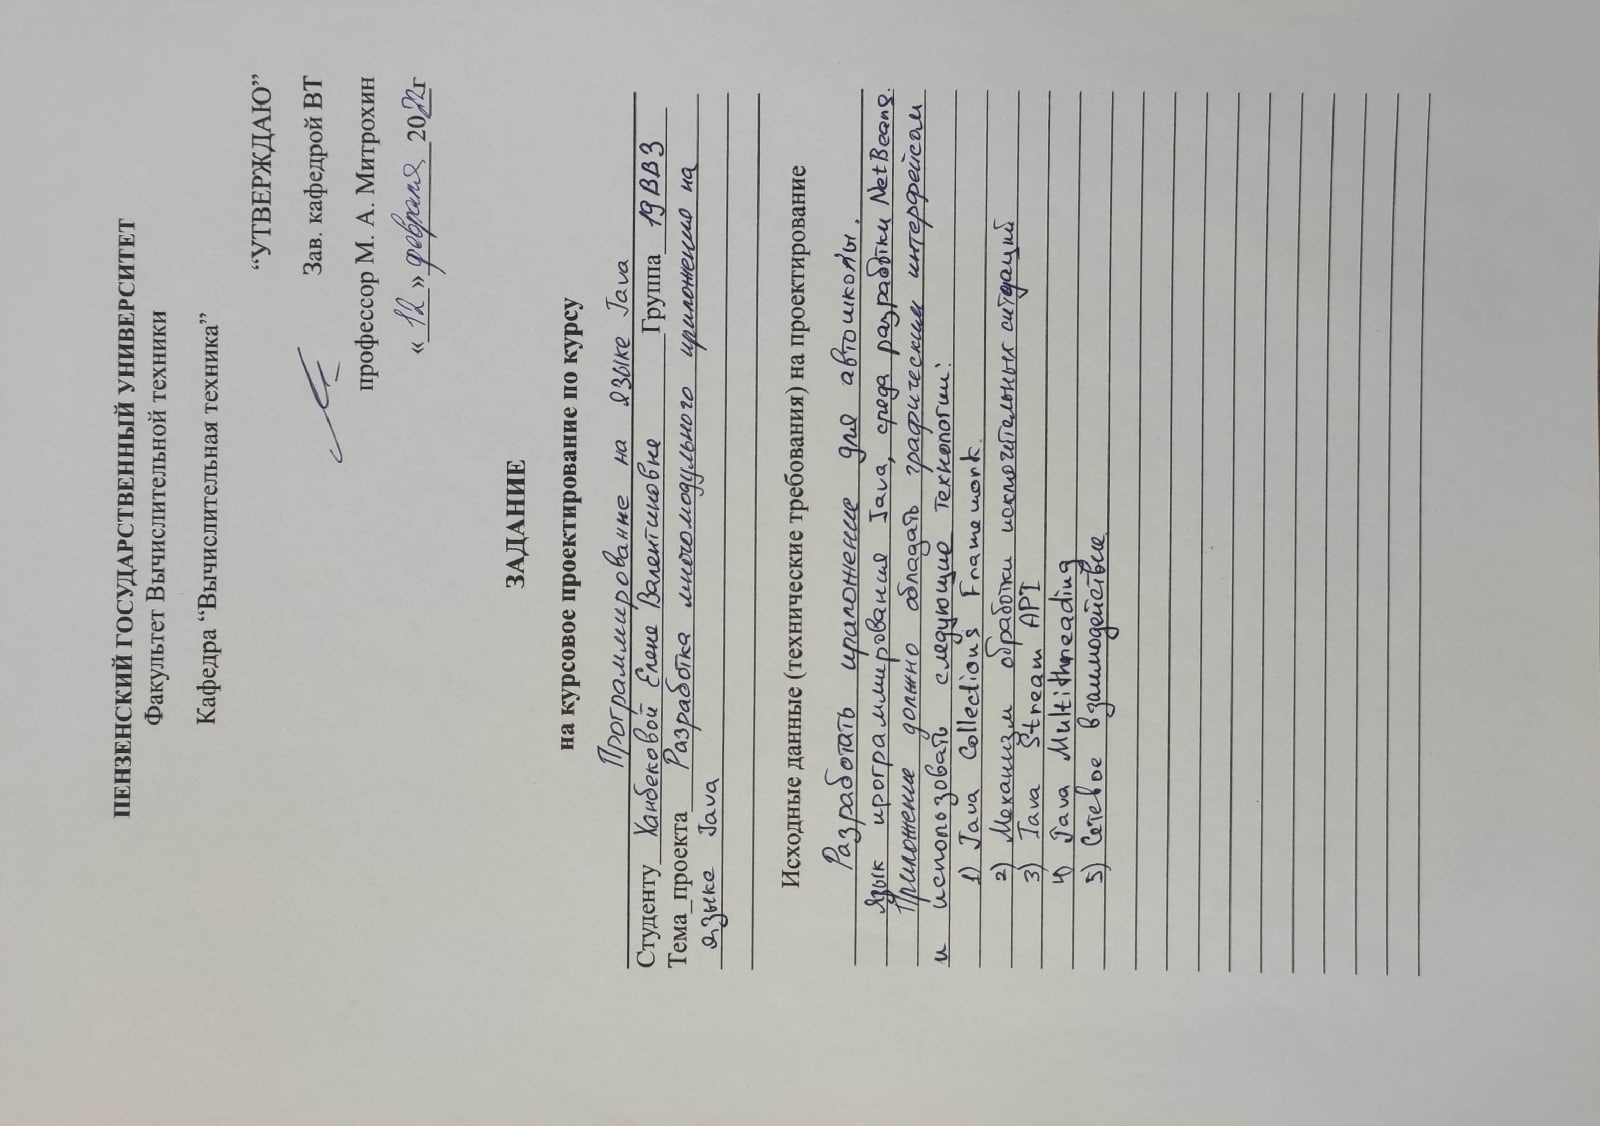 ПЕНЗЕНСКИЙ ГОСУДАРСТВЕННЫЙ УНИВЕРСИТЕТ
Факультет Вычислительной техники
Кафедра “Вычислительная техника”
“УТВЕРЖДАЮ”
Зав. кафедрой ВТ
профессор М. А. Митрохин
« 12 » февраля 2022г
ЗАДАНИЕ
на курсовое проектирование по курсу
Программирование на языке Java
Студенту Ханбековой Елене Валентиновне Группа 19ВВ3
Тема проекта Разработка многомодульного приложения на
языке Java
Исходные данные (технические требования) на проектирование
Разработать приложение для автошколы.
Язык программирования Java, среда разработки NetBeans.
Приложение должно обладать графическим интерфейсом
и использовать следующие технологии:
1) Java Collections Framework.
2) Механизм обработки исключительных ситуаций
3) Java Stream API
4) Java Multithreading
5) Сетевое взаимодействие